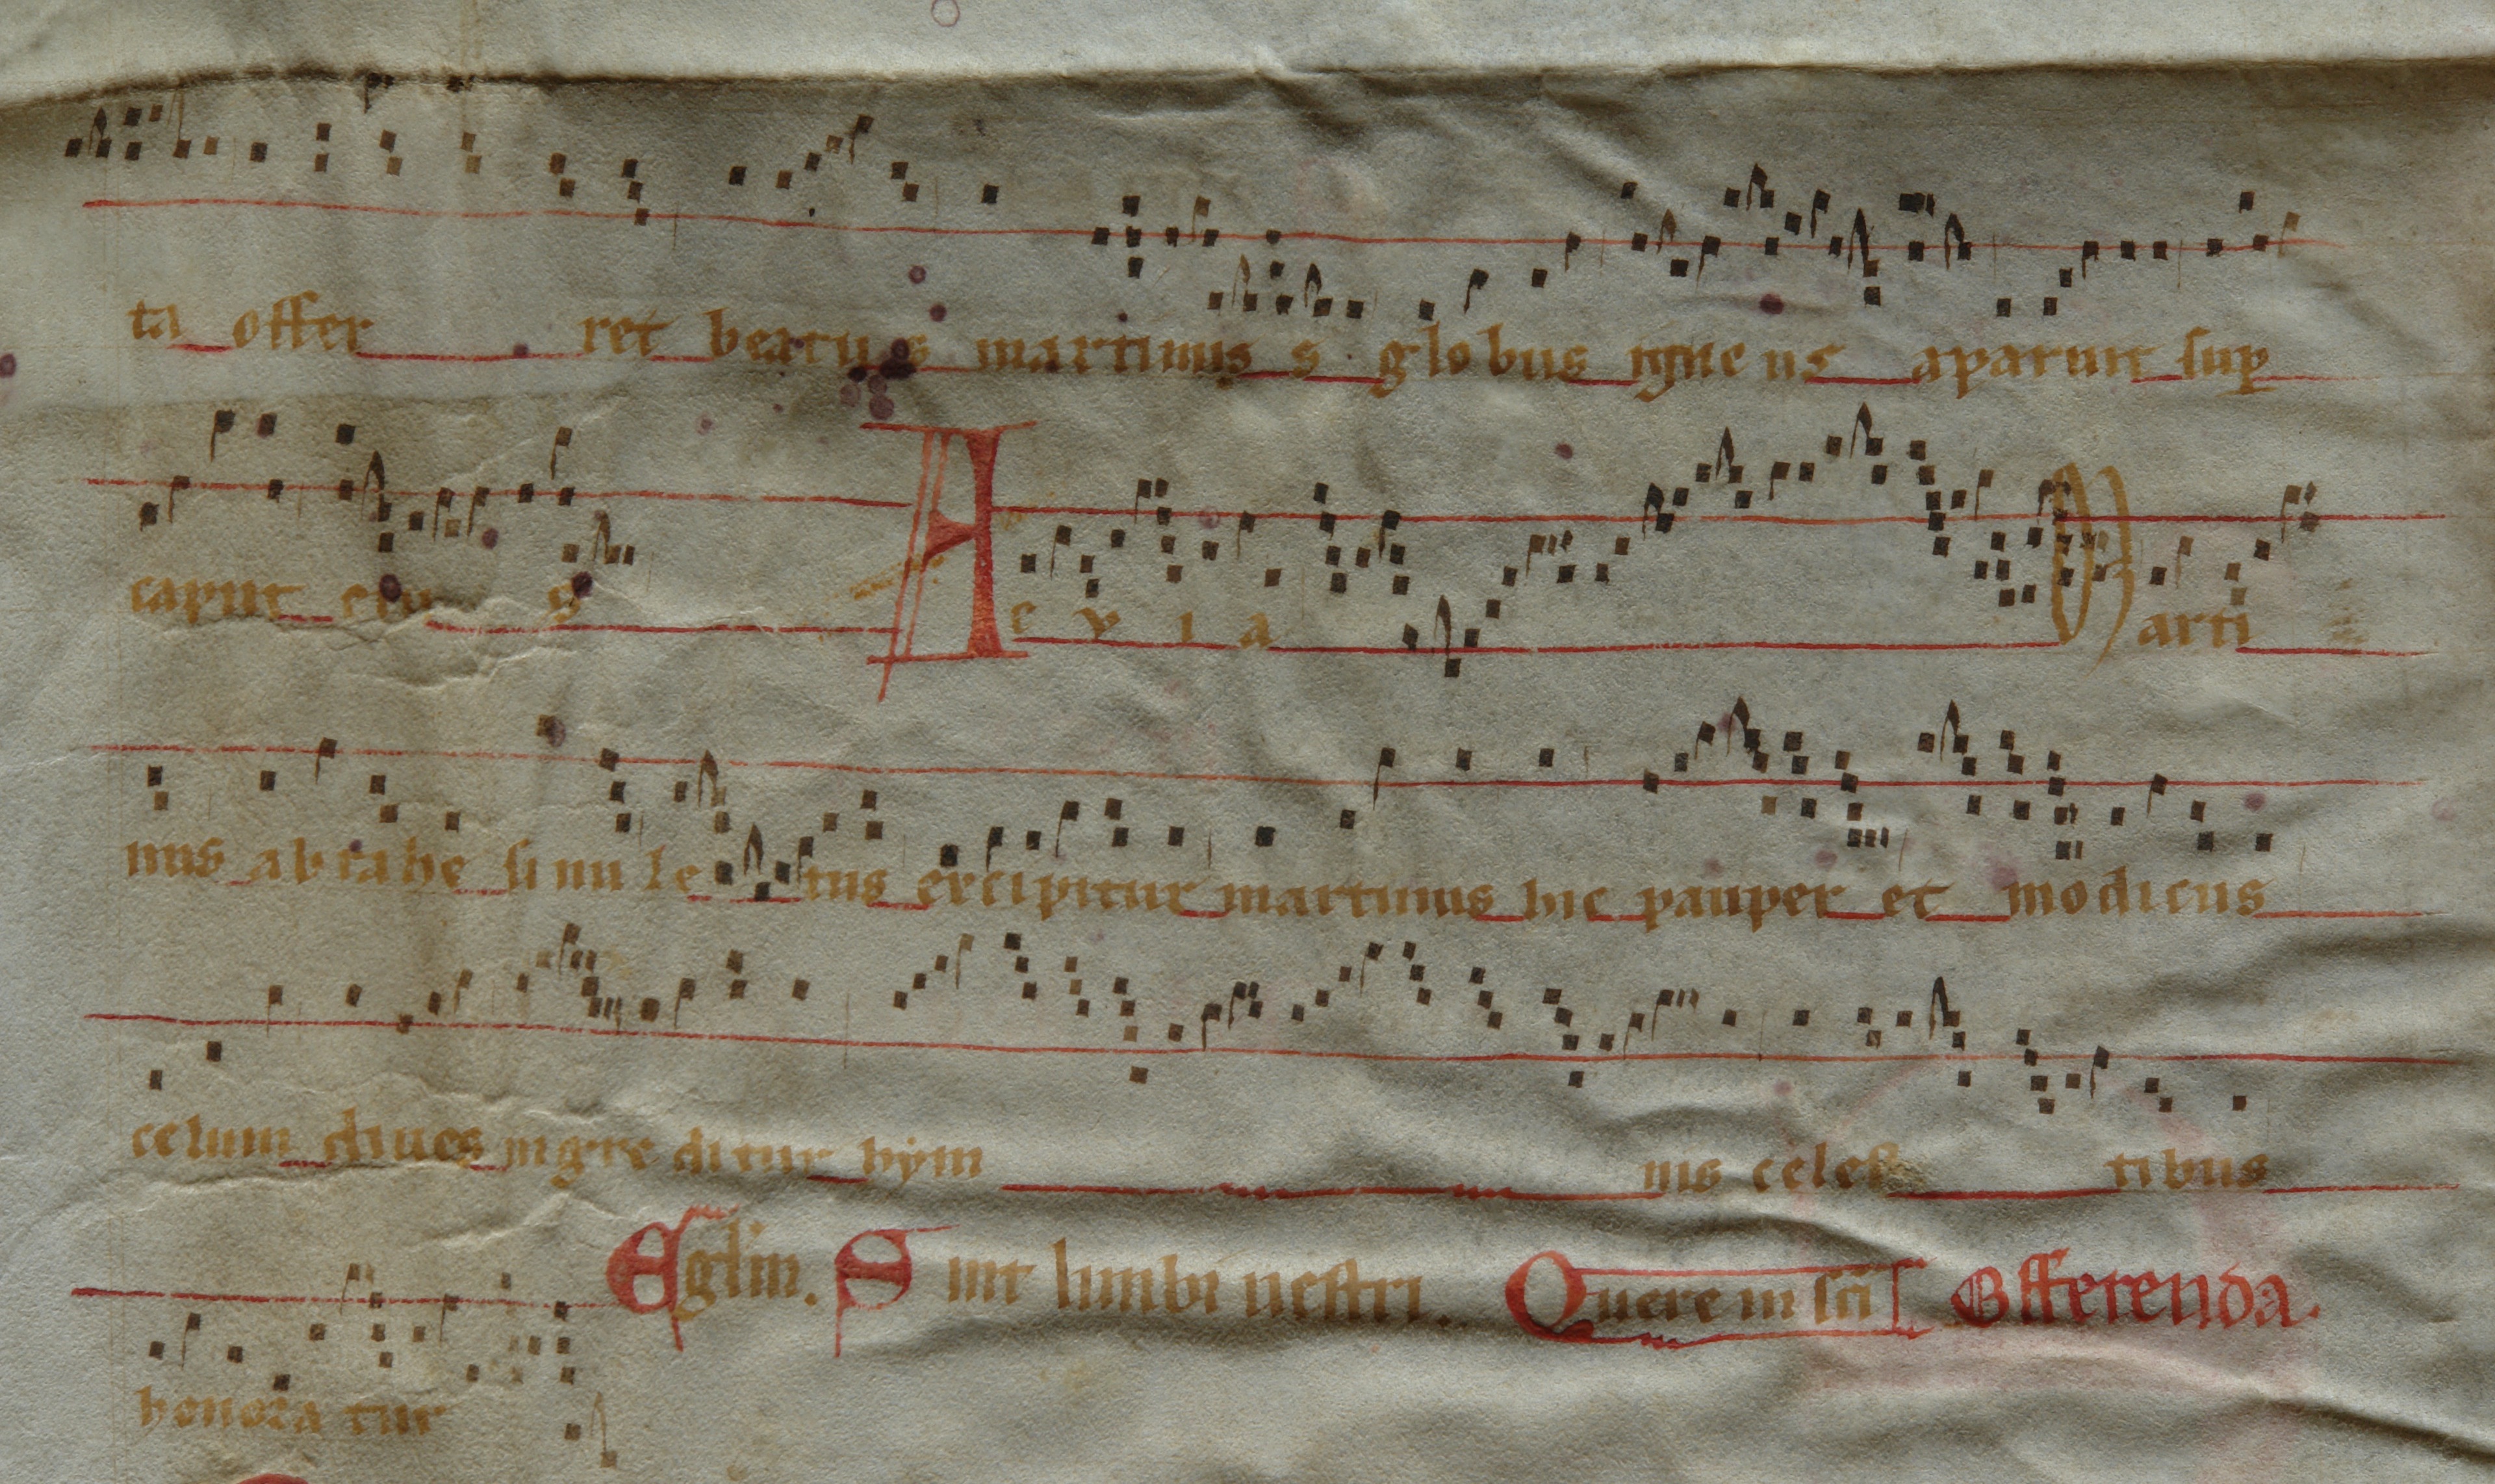 ta offer ret beatus martinus s globus igneus aparuit sup
caput eiu s A e v i a Marti
nus abrahe sinu le tus excipitur martinus hic pauper et modicus
celum diues ingre ditur hym nis celes tibus
honora tur Eglim. Sint limbi uestri. Quere in sci Offerenda.